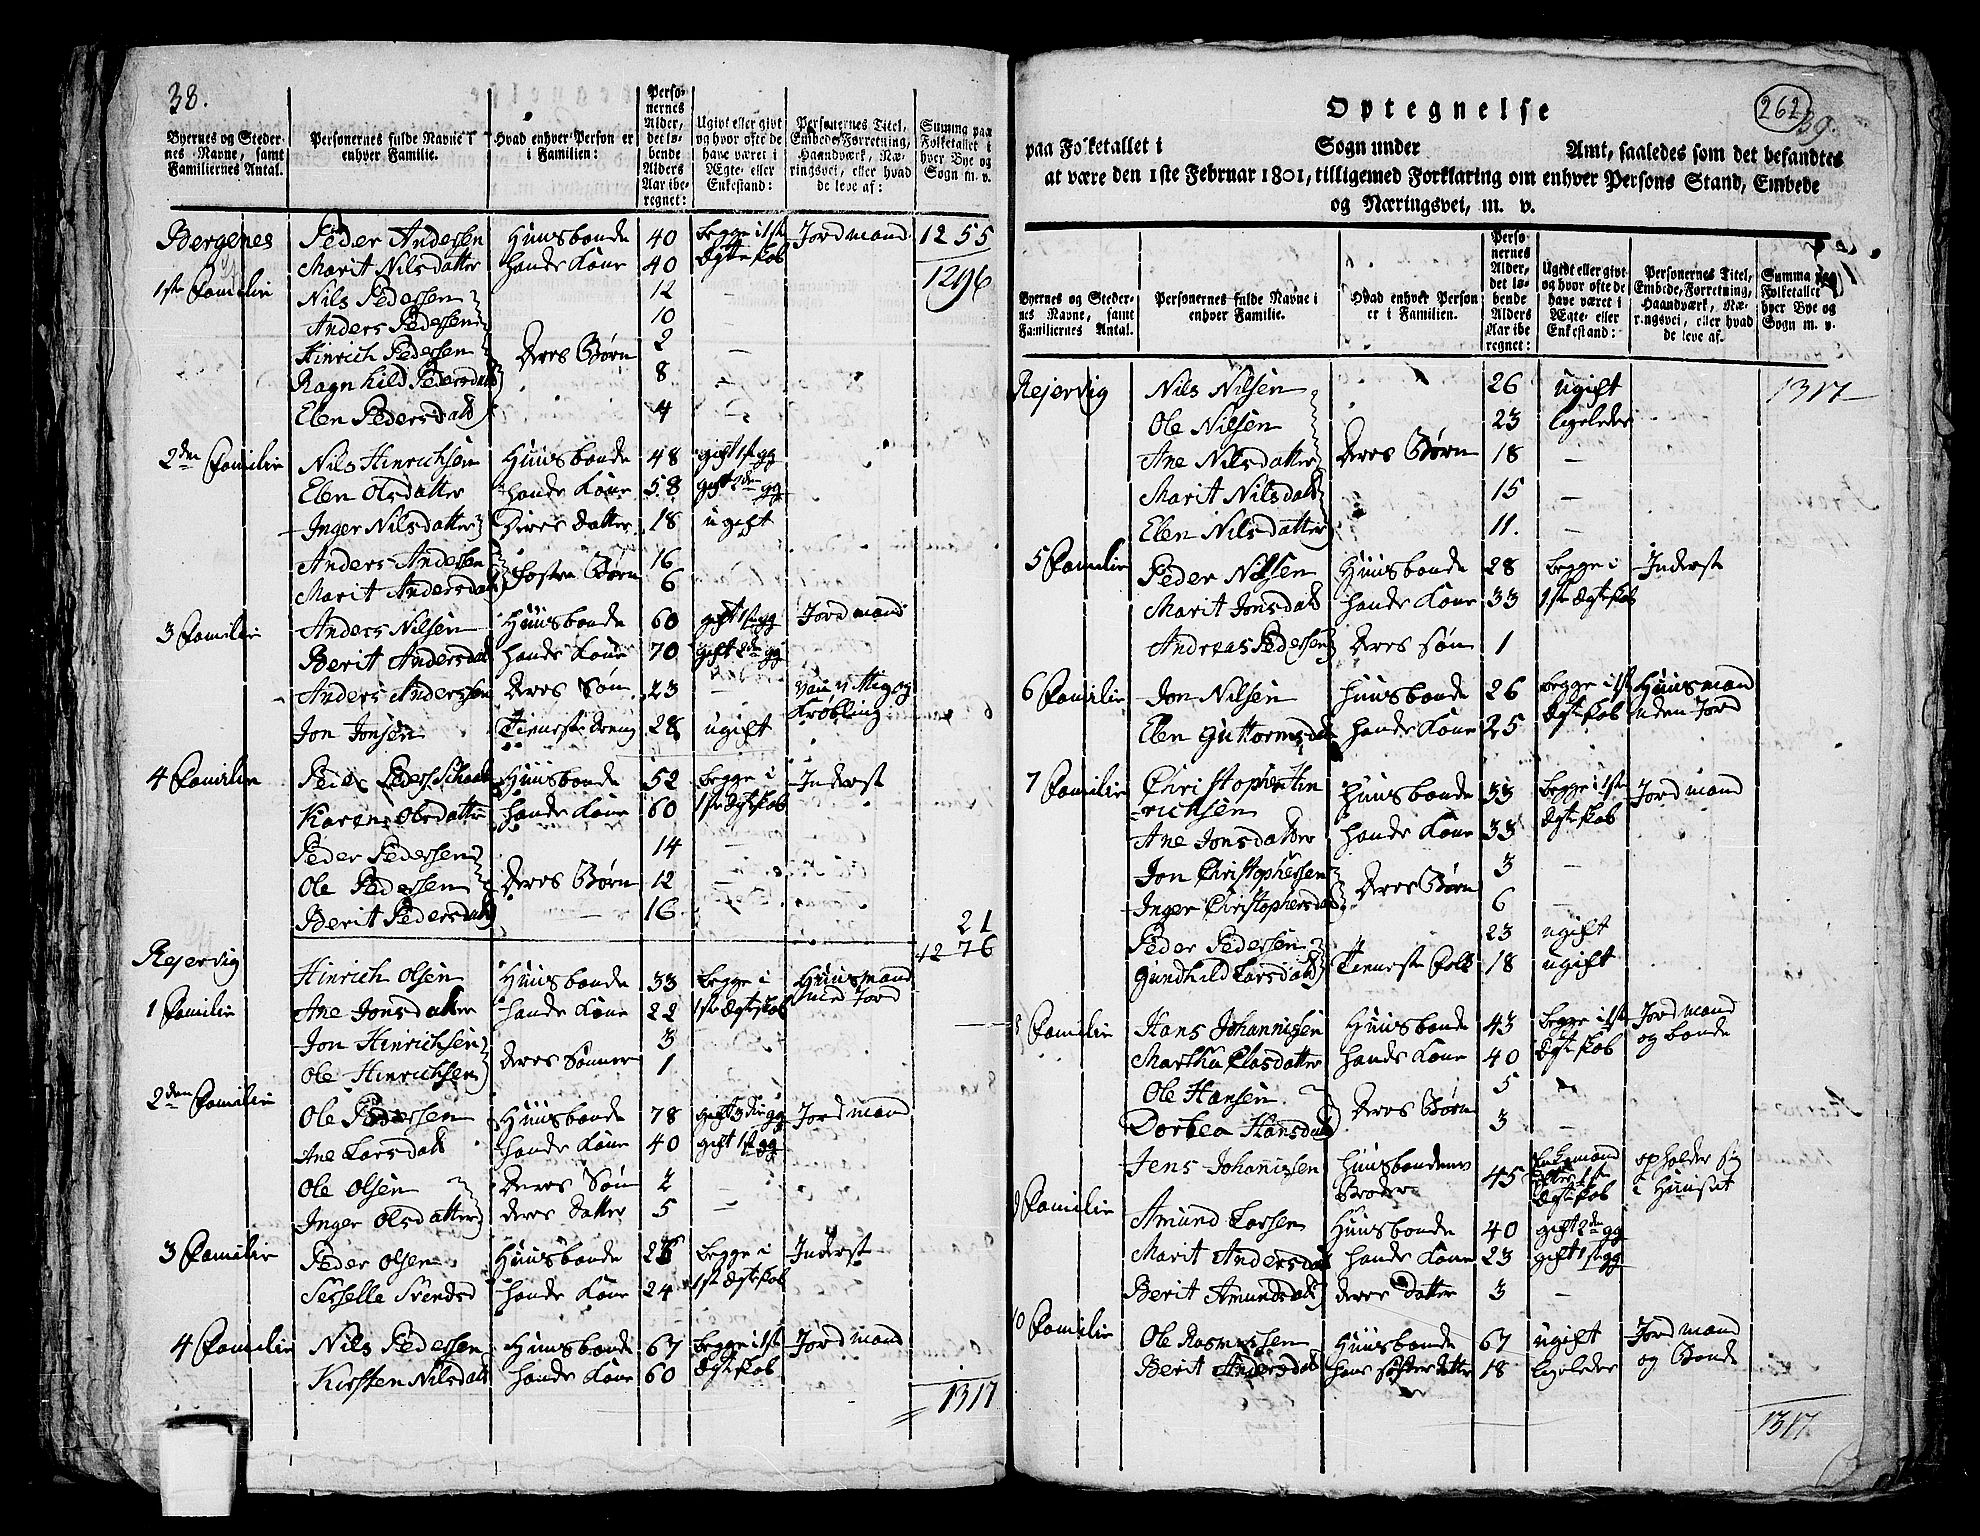 38.
Byernes og Steder-nes Navne, samt Familiernes Antal.
Personernes fulde Navne i enhver Familie.
Hvad enhver Person er i Familien:
Perso-nernes Alder, det lø-bende Alders Aar ibe-regnet:
Ugivt eller givt og hvor ofte de have været i Ægte- eller Enkestand:
Personernes Titel, Embede, Forretning, Haandværk, Næ-ringsvei, eller hvad de leve af:
Summa paa Folketallet i hver Bye og Sogn m. v.
Bergenes Peder Andersen Huusbonde 40 begge i 1ste Jordmand 1255
Marit Nilsdatter hands Kone 40 Ægteskab
1ste Familie Nils Pedersen 12 — 1296
Anders Pedersen 10
Hinrich Pedersen deres Børn 2 —
Ragnhild Pedersdatt 8 —
Elen Pedersdatt 4 —
2den Familie Nils Hinrichsen Huusbonde 48 gift 1ste gg
Elen Olsdatter hands Kone 58 gift 2den gg
Inger Nilsdatter Deres datter 18 ugift
Anders Andersen 16
Marit Andersdatt foster Børn 6
3 Familie Anders Nilsen Huusbonde 60 gift 1ste gg Jordmand
Berit Andersdatt hands Kone 70 gift 2den gg
Anders Andersen deres Søn 23 — Van vittig og
Krøbling
Jon Jonsen Tieneste dreng 28 ugift
4 Familie Peder Peders. Huusbonde 52 begge i Inderst
Karen Olsdatter hands Kone 60 1ste Ægteskab
Peder Pedersen 14 —
Ole Pedersen deres Børn 12 —
Berit Pedersdatt 16
21
1276
Rejervig
Hinrich Olsen Huusbonde 33 begge i Huusmand
1 Familie Ane Jonsdatter hands Kone 22 1ste Ægteskab med Jord
Jon Hinrichsen 3
Ole Hinrichsen deres Sønner 1
2den Familie
Ole Pedersen Huusbonde 78 gift 3die gg Jordmand
Ane Larsdatt hands Kone 40 gift 1ste gg
Ole Olsen Deres Søn 2 —
Inger Olsdatter deres datter 5 —
3 Familie Peder Olsen Huusbonde 26 begge i Inderst
Sesselle Svendsd hands Kone 24 1ste Ægteskab
4 Familie Nils Pedersen Huusbonde 67 begge i 1ste Jordmand
Kirsten Nilsdatt hands Kone 60 Ægteskab
1317
Optegnelse
262 39.
paa Folketallet i Sogn under Amt, saaledes som det befandtes
at være den 1ste Februar 1801, tilligemed Forklaring om enhver Persons Stand, Embede
og Næringsvei, m. v.
Byernes og Steder-nes Navne, samt Familiernes Antal.
Personernes fulde Navne i enhver Familie.
Hvad enhver Person er i Familien.
Perso-nernes Alder, det lø-bende Alders Aar ibe-regnet:
Ugivt eller givt og hvor ofte de have været i Ægte- eller Enkestand:
Personernes Titel, Embede, Forretning, Haandværk, Næ-ringsvei, eller hvad de leve af.
Summa paa Folketallet i hver Bye og Sogn m. v.
Rejervig Nils Nilsen 26 ugift 1317
Ole Nilsen 23 ligeledes
Ane Nilsdatter deres Børn 18 —
Marit Nilsdatt 15 —
Elen Nilsdatter 11. —
5 Familie Peder Nilsen Huusbonde 28 begge i Inderst
Marit Jonsdatt hands Kone 33 1ste Ægteskab
Andreas Pedersen deres søn 1
6 Familie Jon Nilsen Huusbonde 26 begge i 1ste Huusmand
Elen Guttormsdatt hands Kone 25 Ægteskab uden Jord
7 Familie Christopher Hin
richsen Huusbonde 33 begge i 1ste Jordmand
Ane Jonsdatter hands Kone 33 Ægteskab
Jon Christophersen 3 —
Inger Christophersdatt deres Børn 6 —
Peder Pedersen 23 ugift
Gundhild Larsdatt Tieneste folk 18 ugift
8 Familie Hans Johannisen Huusbonde 43 begge i 1ste Jordmand
Martha Olasdatter hands Kone 40 Ægteskab og bonde
Ole Hansen 5
Dorbea Hansdatt deres Børn 3 —
Jens Johannissen Huusbondens 45 Enkemand opholder sig
Broder efter 1ste Ægteskab i Huuset
9 Familie Amund Larsen Huusbonde 40 gift 2den gg
Marit Andersdatt hands Kone 23 gift 1ste gg
Berit Amundsdatt deres datter 3 —
10 Familie Ole Rasmussen Huusbonde 67 ugift Jordmand
Berit Andersdatt hans søster datter 18 ligeledes og Bonde
1317